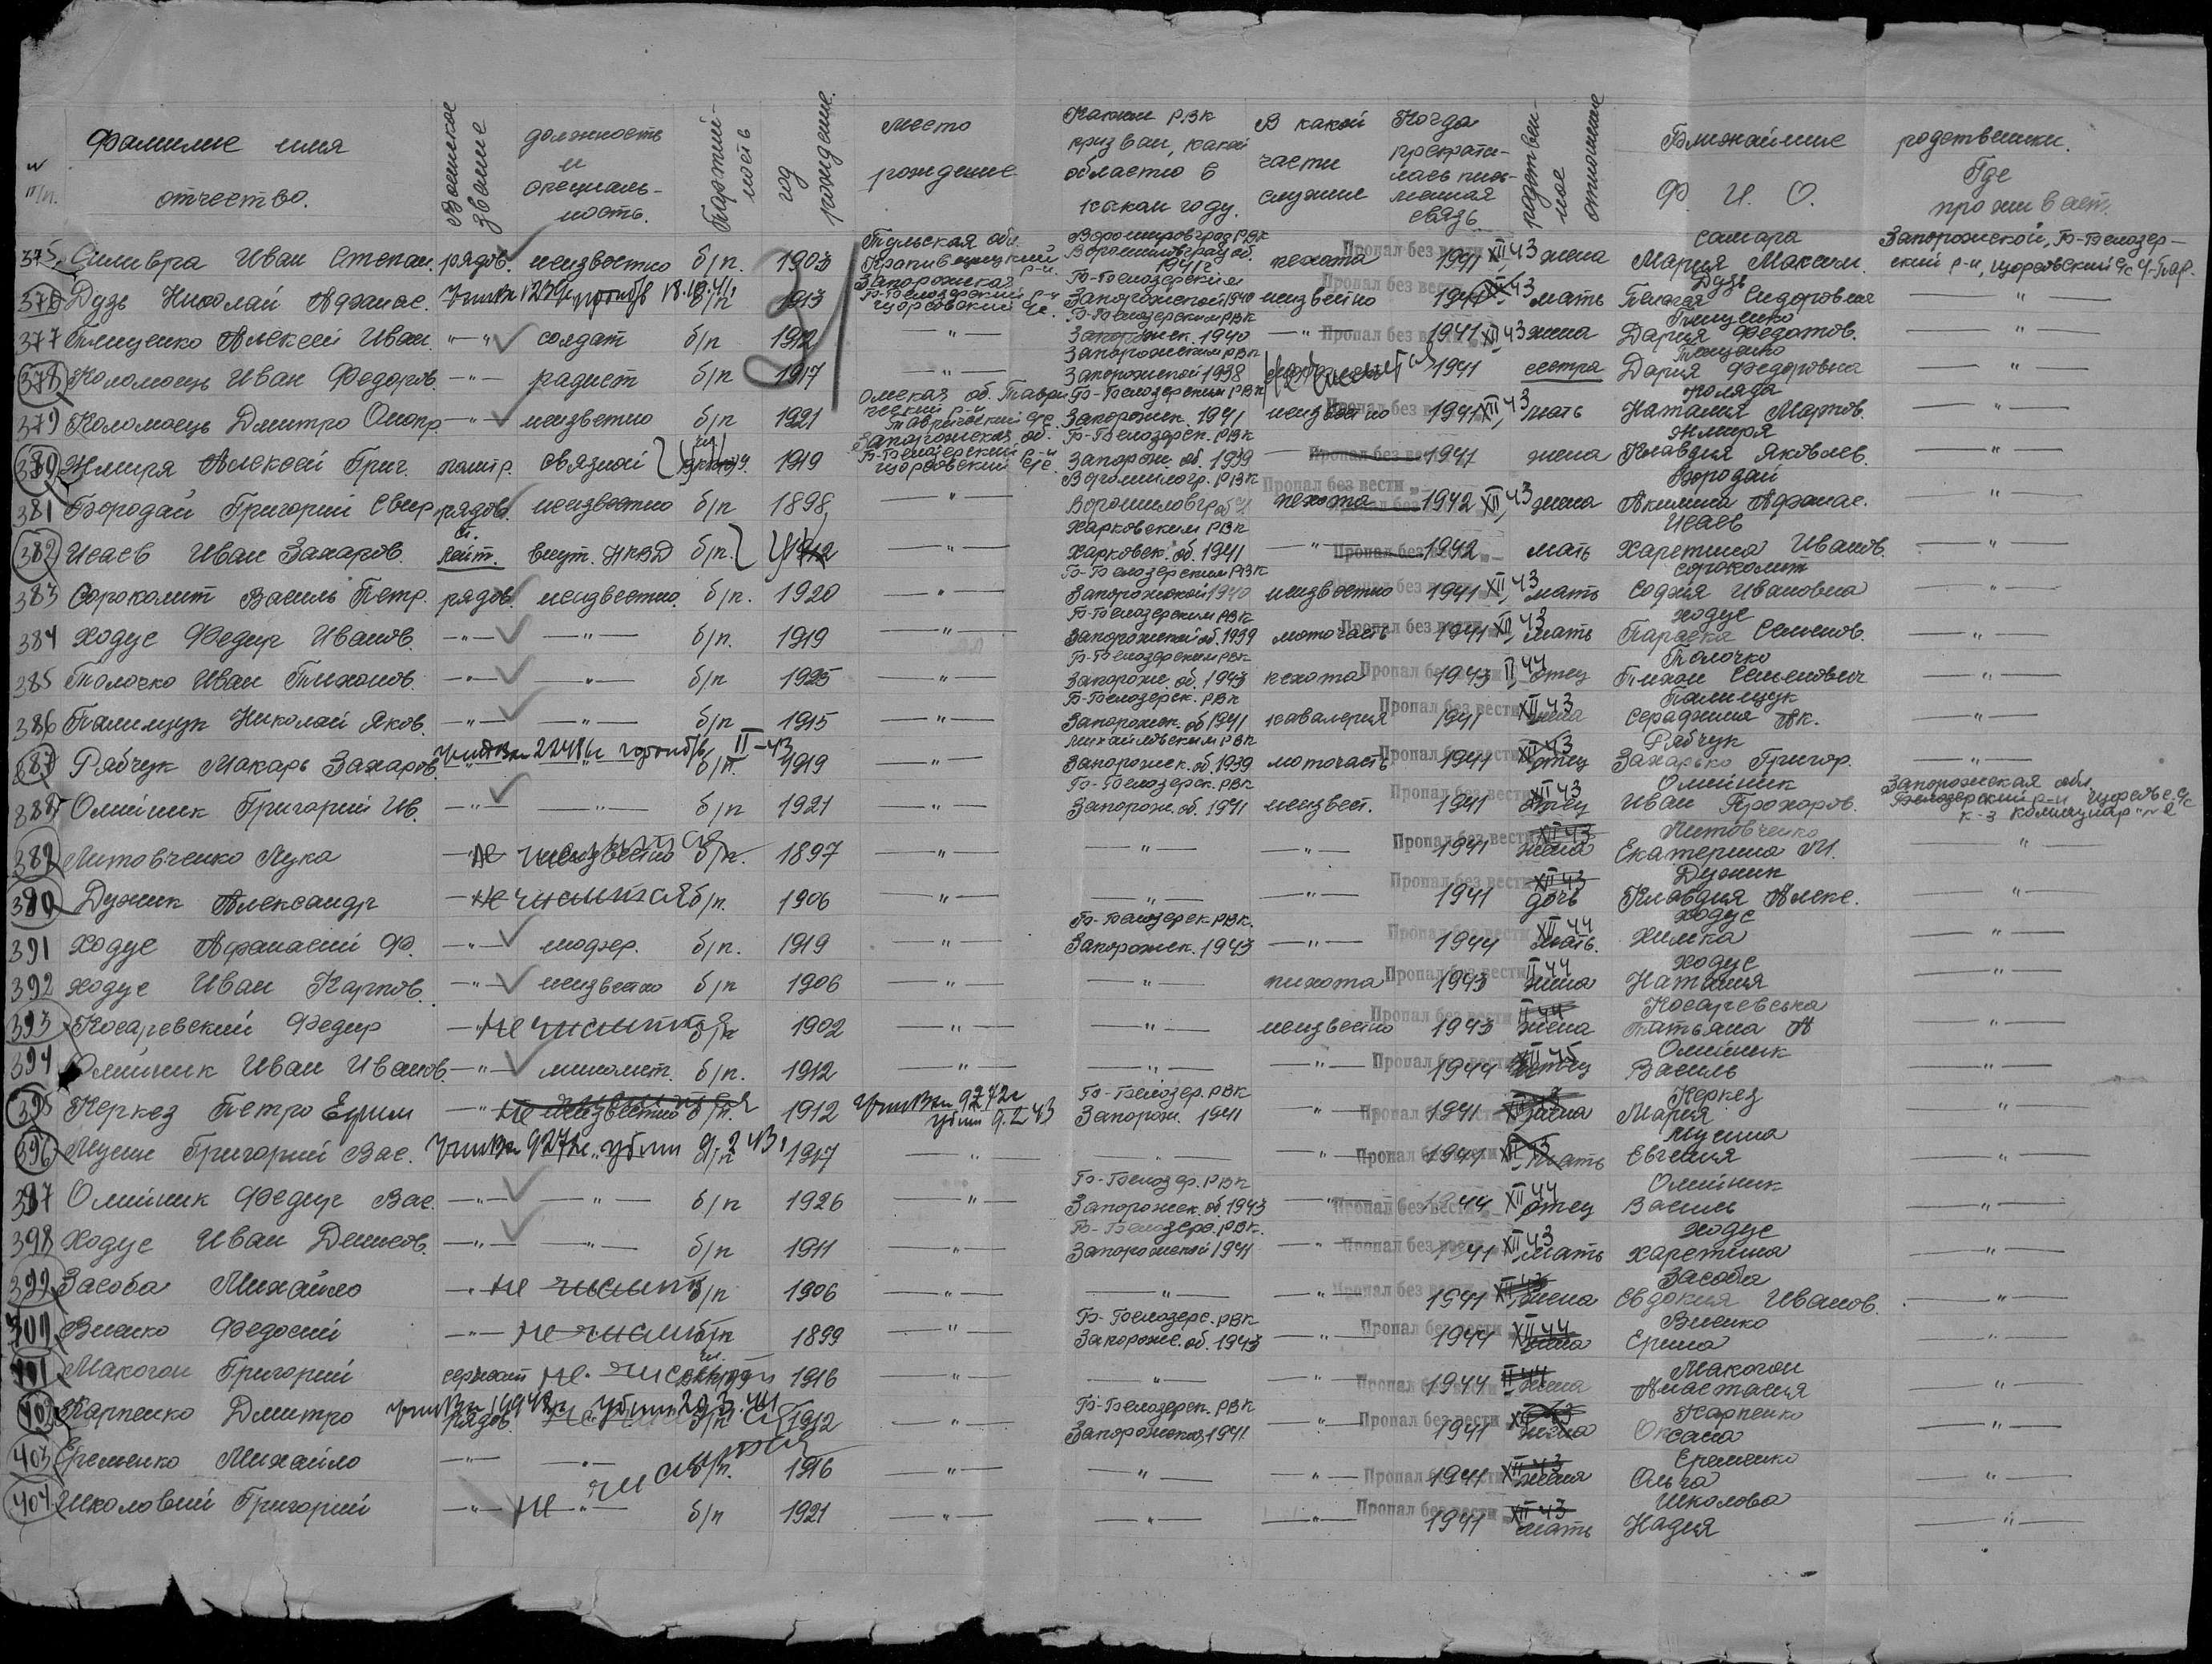 № п/п. Фамилие имя отчество. Воинское звание должность и специальность. Партийность год рождение. место рождение Каким РВК призван, какой областью в каком году. В какой части служил Когда прекратилась письменная связь родственное отношение Ближайшие родственники.
Ф. И. О. Где проживает.
375 Иван Степан. рядов. неизвестно б/п. 1903 Тульская обл. р-н Ворошиловград РВК Ворошиловград об. 1941 г. пехота Пропал без вести 1941 XII 43 жена Самара Мария Максим. Запорожской, Б-Белозерский р-н, щорсовский с/с
376 Дузь Николай Афанас. б/п 1913 Запорожская Б-Белозерский р-н щорсовский с/с. Б-Белозерским Запорожской 1940 неизвестно Пропал без вести 1941 XII 43 мать Дузь Пелагея Сидоровна — " —
377 Алексей Иван. — " — солдат б/п 1912 — " — Б-Белозерским РВК Запорожск. 1940 — " — Пропал без вести 1941 XII 43 жена Дария Федотов. — " —
378 Коломоець Иван Федоров. — " — радист б/п 1917 — " — Запорожским РВК Запорожской 1938 1941 сестра Дария Федоровна — " —
379 Коломоець Дмитро Онопр. — " — неизвестно б/п 1921 Омская об. Таврический р-н Таврический с/с. Б-Белозерским РВК Запорожск. 1941 неизвестно Пропал без вести 1941 XII 43 мать Коляда Наталия Мартов. — " —
380 Жмиря Алексей Григ. политр. связной 1919 Запорожская об. Б-Белозерский р-н щорсовский с/с. Б-Белозерск. РВК Запорож. об. 1939 — Пропал без вести 1941 жена Жмиря Клавдия Яковлев. — " —
381 Бородай Григорий Свир. рядов. неизвестно б/п 1898 — " — Ворошиловгр. РВК Ворошиловгр. об. Пропал без вести пехота 1942 XII 43 жена Бородай Акилина Афанас. — " —
382 Исаев Иван Захаров. ст. лейт. внут. НКВД б/п. 1912 — " — Харковским РВК Харковск. об. 1941 — " — Пропал без вести 1942 мать Исаев Харетина Иванов. — " —
383 Сороколит Василь Петр. рядов. неизвестно. б/п. 1920 — " — Б-Белозерским РВК Запорожской 1940 неизвестно Пропал без вести 1941 XII 43 мать Сороколит София Ивановна — " —
384 Ходус Федир Иванов. — " — — " — б/п. 1919 — " — Б-Белозерским РВК Запорожской об. 1939 моточасть Пропал без вести 1941 XII 43 мать Ходус Параска Семенов. — " —
385 Толочко Иван Тихонов. — " — — " — б/п 1925 — " — Б-Белозерским РВК Запорож. об. 1943 пехота Пропал без вести 1943 II 44 отец Толочко Тихон Семенович — " —
386 Палищук Николай Яков. — " — — " — б/п 1915 — " — Б-Белозерск. РВК Запорожск. об 1941 кавалерия Пропал без вести 1941 XII 43 жена Палищук Серафима Ак. — " —
387 Рябчук Макарь Захаров. б/п. 1919 — " — Михайловским РВК Запорожск. об. 1939 моточасть Пропал без вести 1941 XII 43 отец Рябчук Захарько Григор. — " —
388 Олийник Григорий Ив. — " — — " — б/п 1921 — " — Б-Белозерск. РВК Запорож. об. 1941 неизвест. Пропал без вести 1941 XII 43 отец Олийник Иван Прохоров. Запорожская обл. Белозерский р-н щорсов с/с к-з
389 Литовченко Лука — " — не числится неизвестно б/п. 1897 — " — — " — — " — Пропал без вести 1941 XII 43 жена Литовченко Екатерина М. — " —
390 Дужик Александр — не числится б/п. 1906 — " — — " — — " — Пропал без вести 1941 XII 43 дочь Дужик Клавдия Алекс. — " —
391 Ходус Афанасий Ф. — " — шофер. б/п. 1919 — " — Б-Белозерск РВК. Запорожск. 1943 — " — Пропал без вести 1944 XII 44 мать. Ходус Химка — " —
392 Ходус Иван Карпов. — " — неизвестно б/п 1906 — " — — " — пихота Пропал без вести 1943 II 44 жена Ходус Наталия — " —
393 Косаревский Федир — " — не числится б/п 1902 — " — — " — неизвестно Пропал без вести 1943 II 44 жена Косаревська Татьяна А — " —
394 Олийник Иван Иванов. — " — миномет. б/п. 1912 — " — — " — — " — Пропал без вести 1944 XII 45 отец Олийник Василь — " —
395 Керкез Петро Ефим — " — не числится неизвестно б/п. 1912 убит 9.2.43 Б-Белозер. РВК Запорож. 1941 — " — Пропал без вести 1941 жена Керкез Мария — " —
396 Григорий Вас. убит 9.2.43 б/п 1917 — " — — " — — " — Пропал без вести 1941 XII 43 мать Евгения — " —
397 Олийник Федир Вас. — " — — " — б/п 1926 — " — Б-Белозер. РВК Запорожск. об. 1943 — " — Пропал без вести 1944 XII 44 отец Олийник Василь — " —
398 Ходус Иван Денисов. — " — — " — б/п 1911 — " — Б-Белозерс. РВК. Запорожской 1941 — " — Пропал без вести 1941 XII 43 мать Ходус Харетина — " —
399 Засоба Михайло — " — не числится б/п 1906 — " — — " — — " — Пропал без вести 1941 XII 43 жена Засоба Евдокия Иванов. — " —
400 Федосий — " — не числится б/п 1899 — " — Б-Белозерс. РВК Запорожс. об. 1943 — " — Пропал без вести 1944 XII 44 жена Ерина — " —
401 Макогон Григорий сержант не числится 1916 — " — — " — — " — Пропал без вести 1944 II 44 жена Макогон Анастасия — " —
402 Карпенко Дмитро рядов. убит 29.3.44 б/п 1912 — " — Б-Белозерск. РВК Запорожская 1941 — " — Пропал без вести 1941 XII 43 жена Карпенко Оксана — " —
403 Еременко Михайло — " — — " — числится б/п. 1916 — " — — " — — " — Пропал без вести 1941 XII 43 жена Еременко Ольга — " —
404 Школовий Григорий — " — не — " — б/п 1921 — " — — " — — " — Пропал без вести 1941 XII 43 мать Школова Надия — " —